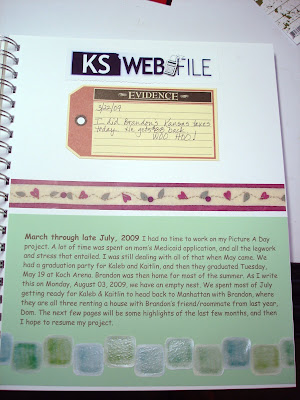 KS WEB FILE
EVIDENCE
3/25/09
I did Brandon's Kansas taxes
today. He gets $88 back.
WOO HOO!
March through late July, 2009 I had no time to work on my Picture A Day
project. A lot of time was spent on mom's Medicaid application, and all the legwork
and stress that entailed. I was still dealing with all of that when May came. We
had a graduation party for Kaleb and Kaitlin, and then they graduated Tuesday,
May 19 at Koch Arena. Brandon was then home for most of the summer. As I write
this on Monday, August 03, 2009, we have an empty nest. We spent most of July
getting ready for Kaleb & Kaitlin to head back to Manhattan with Brandon, where
they are all three renting a house with Brandon's friend/roommate from last year,
Dom. The next few pages will be some highlights of the last few months, and then
I hope to resume my project.